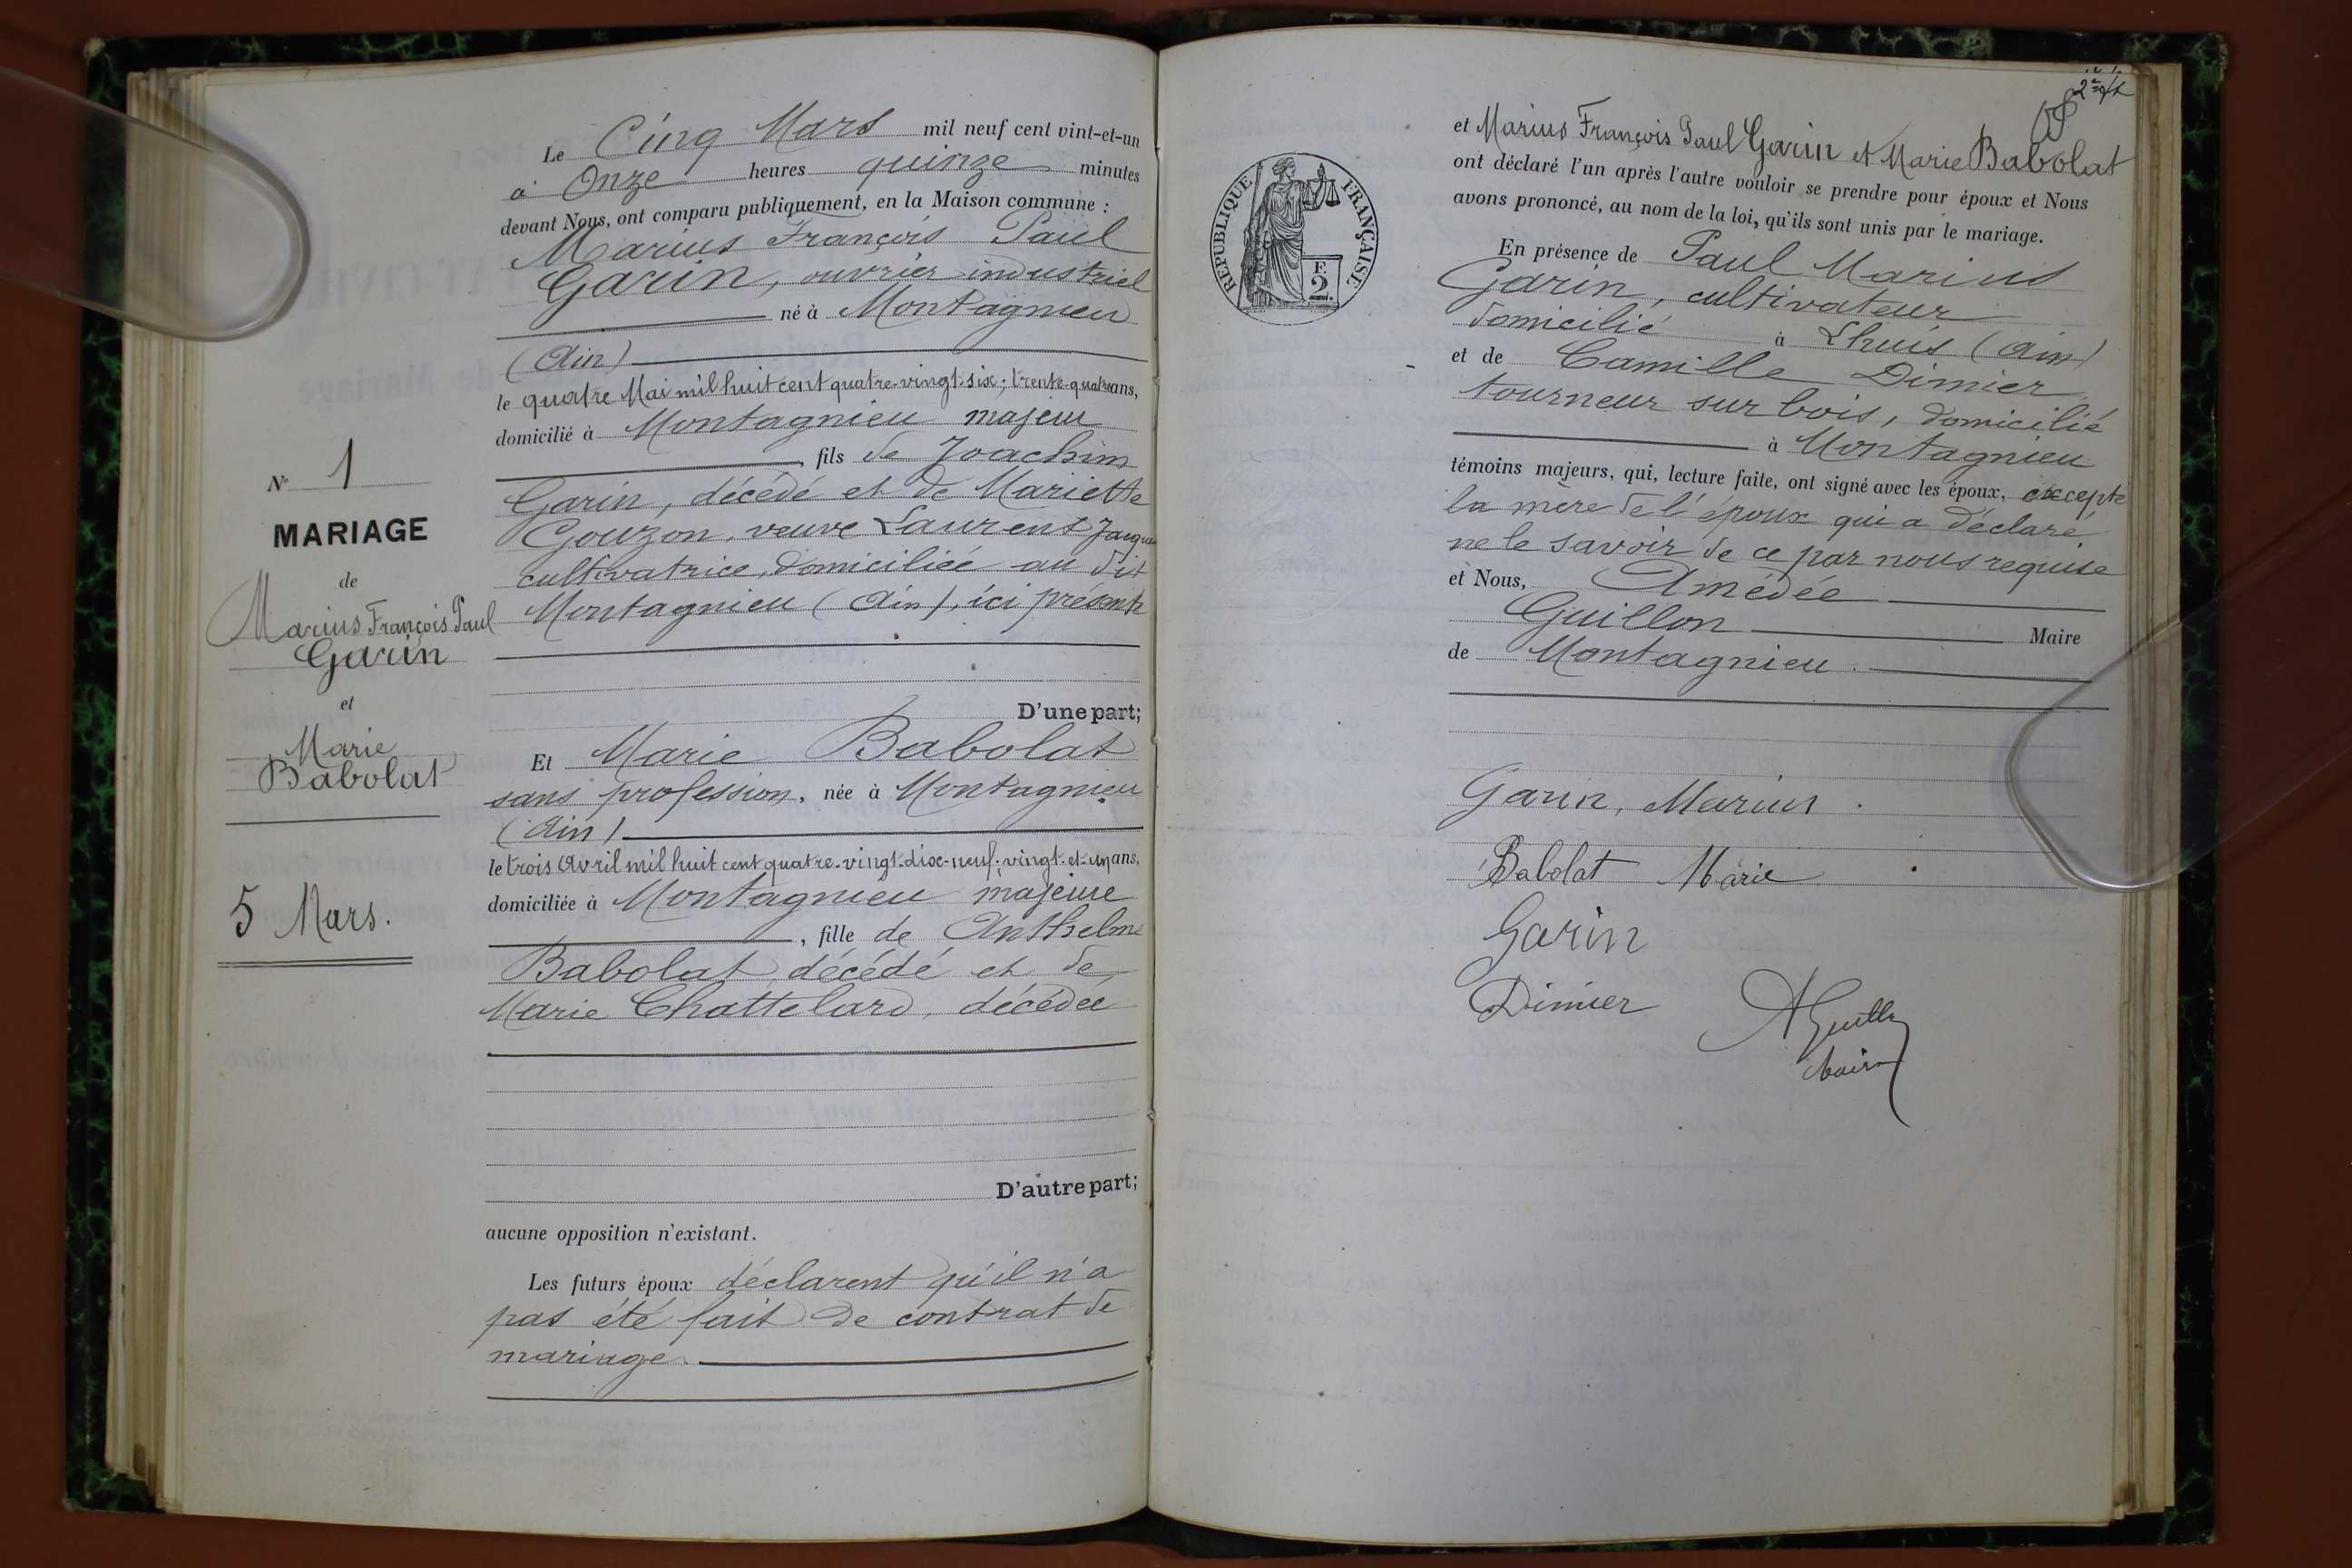 Le Cinq Mars mil neuf cent vint-et-un
à Onze heures quinze minutes
devant Nous, ont comparu publiquement, en la Maison commune :
Marius François Paul
Garin, ouvrier industriel
né à Montagnieu
(Ain)
le quatre Mai mil huit cent quatre-vingt-six; trente-quatre ans,
domicilié à Montagnieu majeur
, fils de Joachim
Garin, décédé et de Mariette
Gouzon, veuve Laurent Jacques
cultivatrice, domiciliée au dit
Montagnieu (Ain), ici présente
D'une part;
Et Marie Babolat
sans profession, née à Montagnieu
(Ain)
le trois Avril mil huit cent quatre-vingt-dix-neuf. vingt-et-un ans,
domiciliée à Montagnieu majeure
, fille de Anthelme
Babolat, décédé et de
Marie Chattelard, décédée
D'autre part;
aucune opposition n'existant.
Les futurs époux déclarent qu'il n'a
pas été fait de contrat de
mariage.
N° 1
MARIAGE
de
Marius François Paul
Garin
et
Marie
Babolat
5 Mars.
RÉPUBLIQUE FRANÇAISE
F.
2.
et Marius François Paul Garin et Marie Babolat
ont déclaré l'un après l'autre vouloir se prendre pour époux et Nous
avons prononcé, au nom de la loi, qu'ils sont unis par le mariage.
En présence de Paul Marius
Garin, cultivateur
domicilié à Lhuis (Ain)
et de Camille Dimier
tourneur sur bois, domicilié
à Montagnieu
témoins majeurs, qui, lecture faite, ont signé avec les époux, excepté
la mère de l'époux qui a déclaré
ne le savoir de ce par nous requise
et Nous, Amédée
Guillon Maire
de Montagnieu.
Garin, Marius.
Babolat Marie
Garin
Dimier